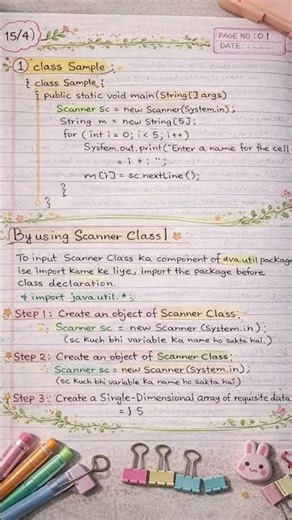 15/4)
PAGE NO: 01
DATE:.......
① class Sample
{ class Sample {
{ public static void main (String[] args)
Scanner sc = new Scanner (System.in);
String m = new String [5];
for ( int i = 0; i < 5; i++)
System.out.print("Enter a name for the cell
= i + : ";
m [i] = sc.nextLine();
}
}
}
[By using Scanner Class]
To input Scanner Class ka component of dva.util package
ise import karne ke liye, import the package before
class declaration.
import java.util.*;
Step 1: Create an object of Scanner Class:
Scanner sc = new Scanner (System.in):
(sc kuch bhi variable ka name ho sakta hai.)
Step 2: Create an object of Scanner Class:
Scanner sc = new Scanner (System.in);
(sc kuch bhi variable ka name ho sakta hai)
Step 3: Create a Single-Dimensional array of requisite data
= ] 5